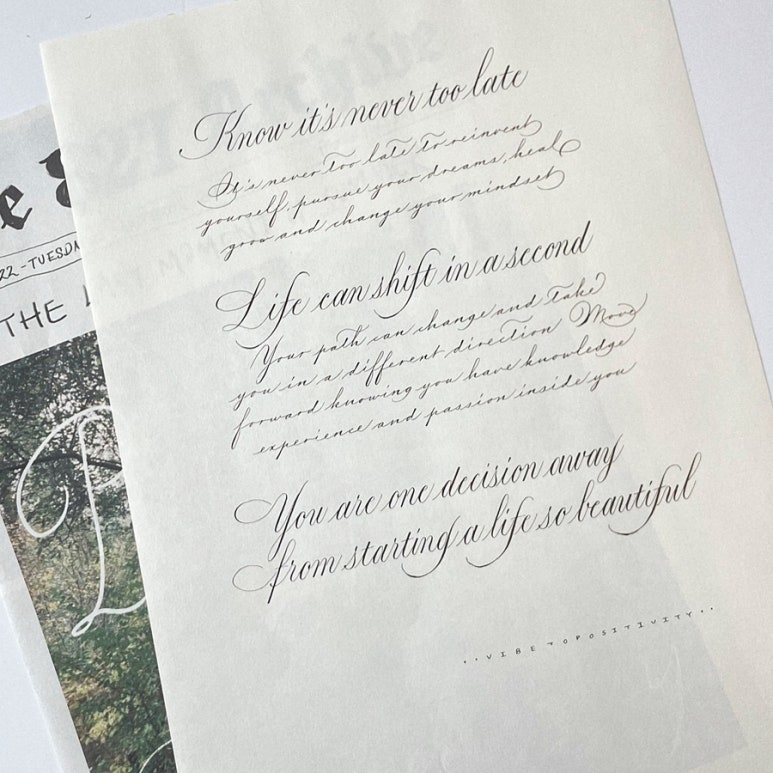 Know it's never too late
It's never too late to reinvent
yourself, pursue your dreams, heal
grow and change your mindset
Life can shift in a second
Your path can change and take
you in a different direction Move
forward knowing you have knowledge
experience and passion inside you
You are one decision away
from starting a life so beautiful
..VIBETOPOSITIVITY..
22-TUESDA
THE